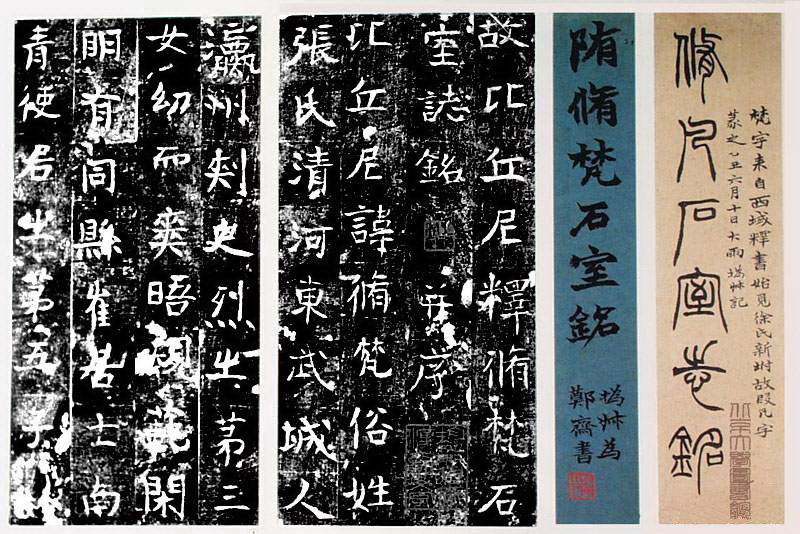 脩凡石室志銘
梵字來自西域釋書始見徐氏新坿故叚凡字
篆之乙丑六月十日大雨撝叔記
陏脩梵石室銘
撝叔為
鄭齋書
故比丘尼釋脩梵石
室誌銘 并序
比丘尼諱脩梵俗姓
張氏清河東武城人
瀛州刾史烈之第三
女幼而爽晤規範閑
明有同縣崔居士南
青使君之第五子